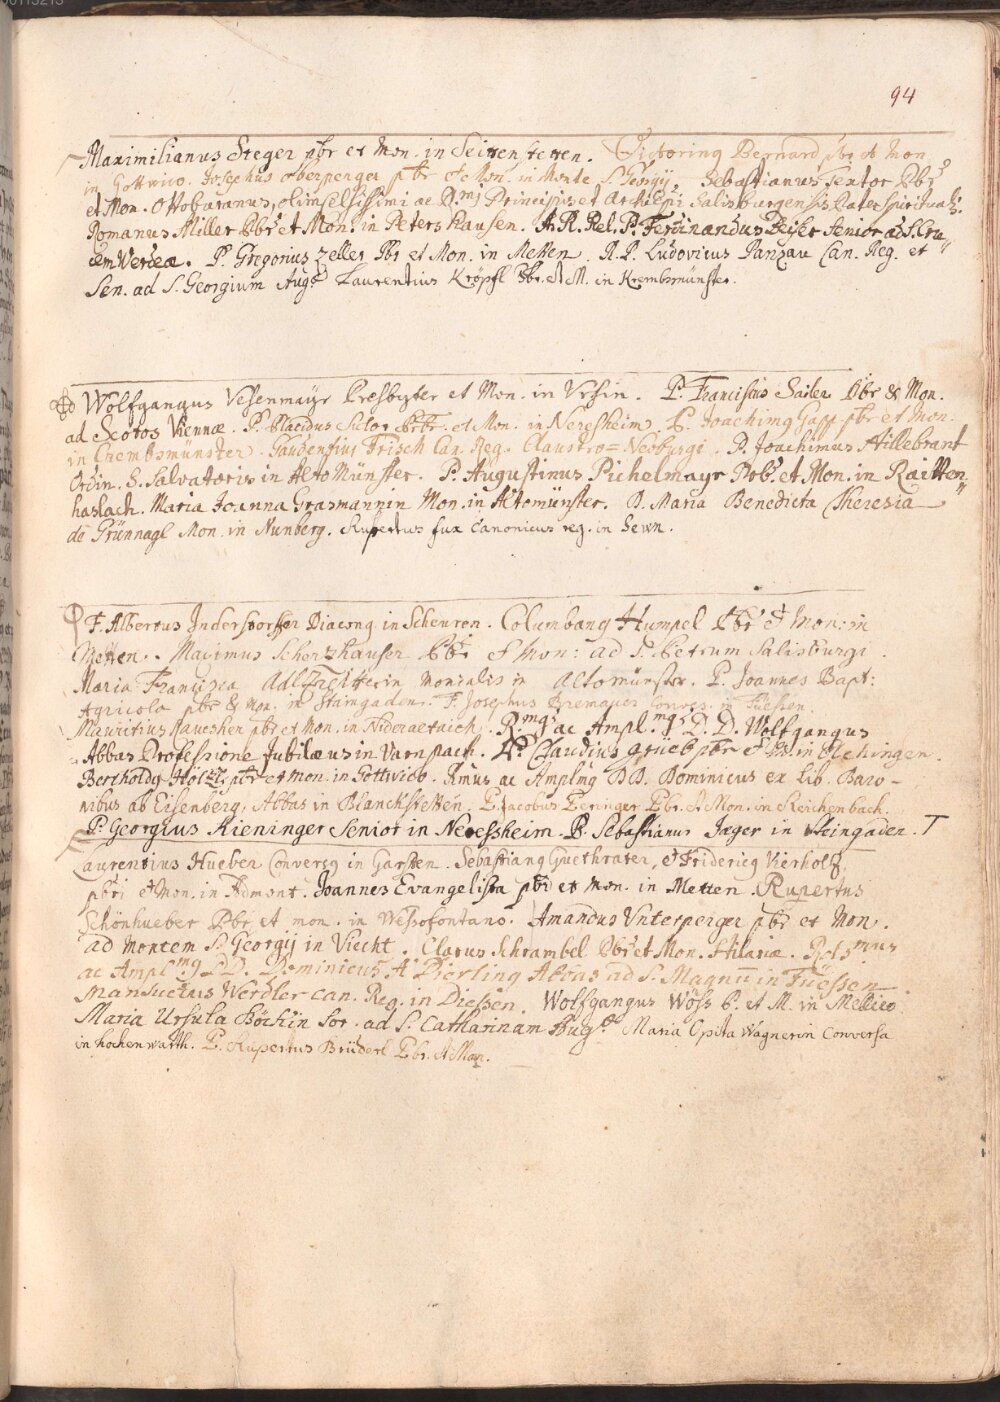 94
Maximilianus Steger pbr et Mon. in Seittenstetten. Victorinus Bernard pbr et Mon
in Gottwico. Josephus oberperger pbr et Mon. in Monte S. Georgij. Sebastianus Textor Pbr
et Mon. Ottoburanus, olim Celsissimi ac R.mi Principis et Archiepi Salisburgensis Pater Spiritualis.
Romanus Miller Pbr et Mon. in Petershausen. A. R. Rel. P. Ferdinandus Senior ad S. Cru
cem Werdeæ. P. Gregorius Zeller Pbr et Mon. in Metten. R. P. Ludovicus Panzau Can. Reg. et
Sen. ad S. Georgium Aug. Laurentius Kröpfl Pbr. et M. in Krembsmünster.
Wolfgangus Vesenmayr Presbyter et Mon. in Vrsin. P. Franciscus Sailer Pbr & Mon.
ad Scotos Viennæ. P. Placidus Sutor Pbr. et Mon. in Neresheim. P. Joachimus Gapp pbr et Mon.
in Crembsmünster. Gaudentius Frisch Can. Reg. Claustro=Neoburgi. P. Joachimus Hillebrant
Ordin. S. Salvatoris in Alto Münster. P. Augustinus Pichelmayr Prb. et Mon. in Raitten
haslach. Maria Joanna Grasmannin Mon. in Altomünster. D. Maria Benedicta Theresia
de Prünnagl Mon. in Nunberg. Rupertus fux Canonicus reg. in Sewn.
F. Albertus Inderstorffer Diaconus in Scheuren. Columbanus Humpel Pbr et Mon: in
Metten. Maximus Schenzhauser Pbr et Mon: ad S. Petrum Salisburgi.
Maria Francisca Adlzreitterin Monialis in Altomünster. P. Joannes Bapt:
Agricola pbr & Mon. in Stamgaden. F. Josephus Bremayer Convers. in Fuessen.
Mauritius pbr et Mon. in Nideraltaich. R.mus ac Ampl.mus D. D. Wolfgangus
Abbas Professione Jubilæus in Varnpach. P. Claudius grueb pbr et M. in Elchingen.
Bertholdus Höltzl pbr et Mon. in Gottwico. Rmus ac Amplmus DD. Dominicus ex Lib. Baro-
nibus ab Eisenberg, Abbas in Blanckstetten. P. Jacobus Peringer Pbr. et Mon. in Reichenbach.
P. Georgius Rieninger Senior in Neressheim. P. Sebastianus Jæger in Steingaden. T
Laurentius Hueber Conversus in Garsten. Sebastianus Guethrater, et Fridericus Vierholz,
pbri et Mon. in Admont. Joannes Evangelista pbr et Mon. in Metten. Rupertus
Schönhueber Pbr et mon. in Wessofontano. Amandus Unterperger pbr et Mon.
ad Montem S. Georgij in Viecht. Clarus Schrambel Pbr et Mon. Hilariæ. Rss.mus
ac Ampl.mus DD. Dominicus A Dierling Abbas ad S. Magnum in Füessen.
Mansuetus Werdler Can. Reg. in Diessen. Wolfgangus Wöss P. et M. in Mellico
Maria Ursula Böckin Sor. ad S. Catharinam Aug. Maria Opita Wagnerin Conversa
in hochenwarth. P. Rupertus Brüderl Pbr. et Mon.